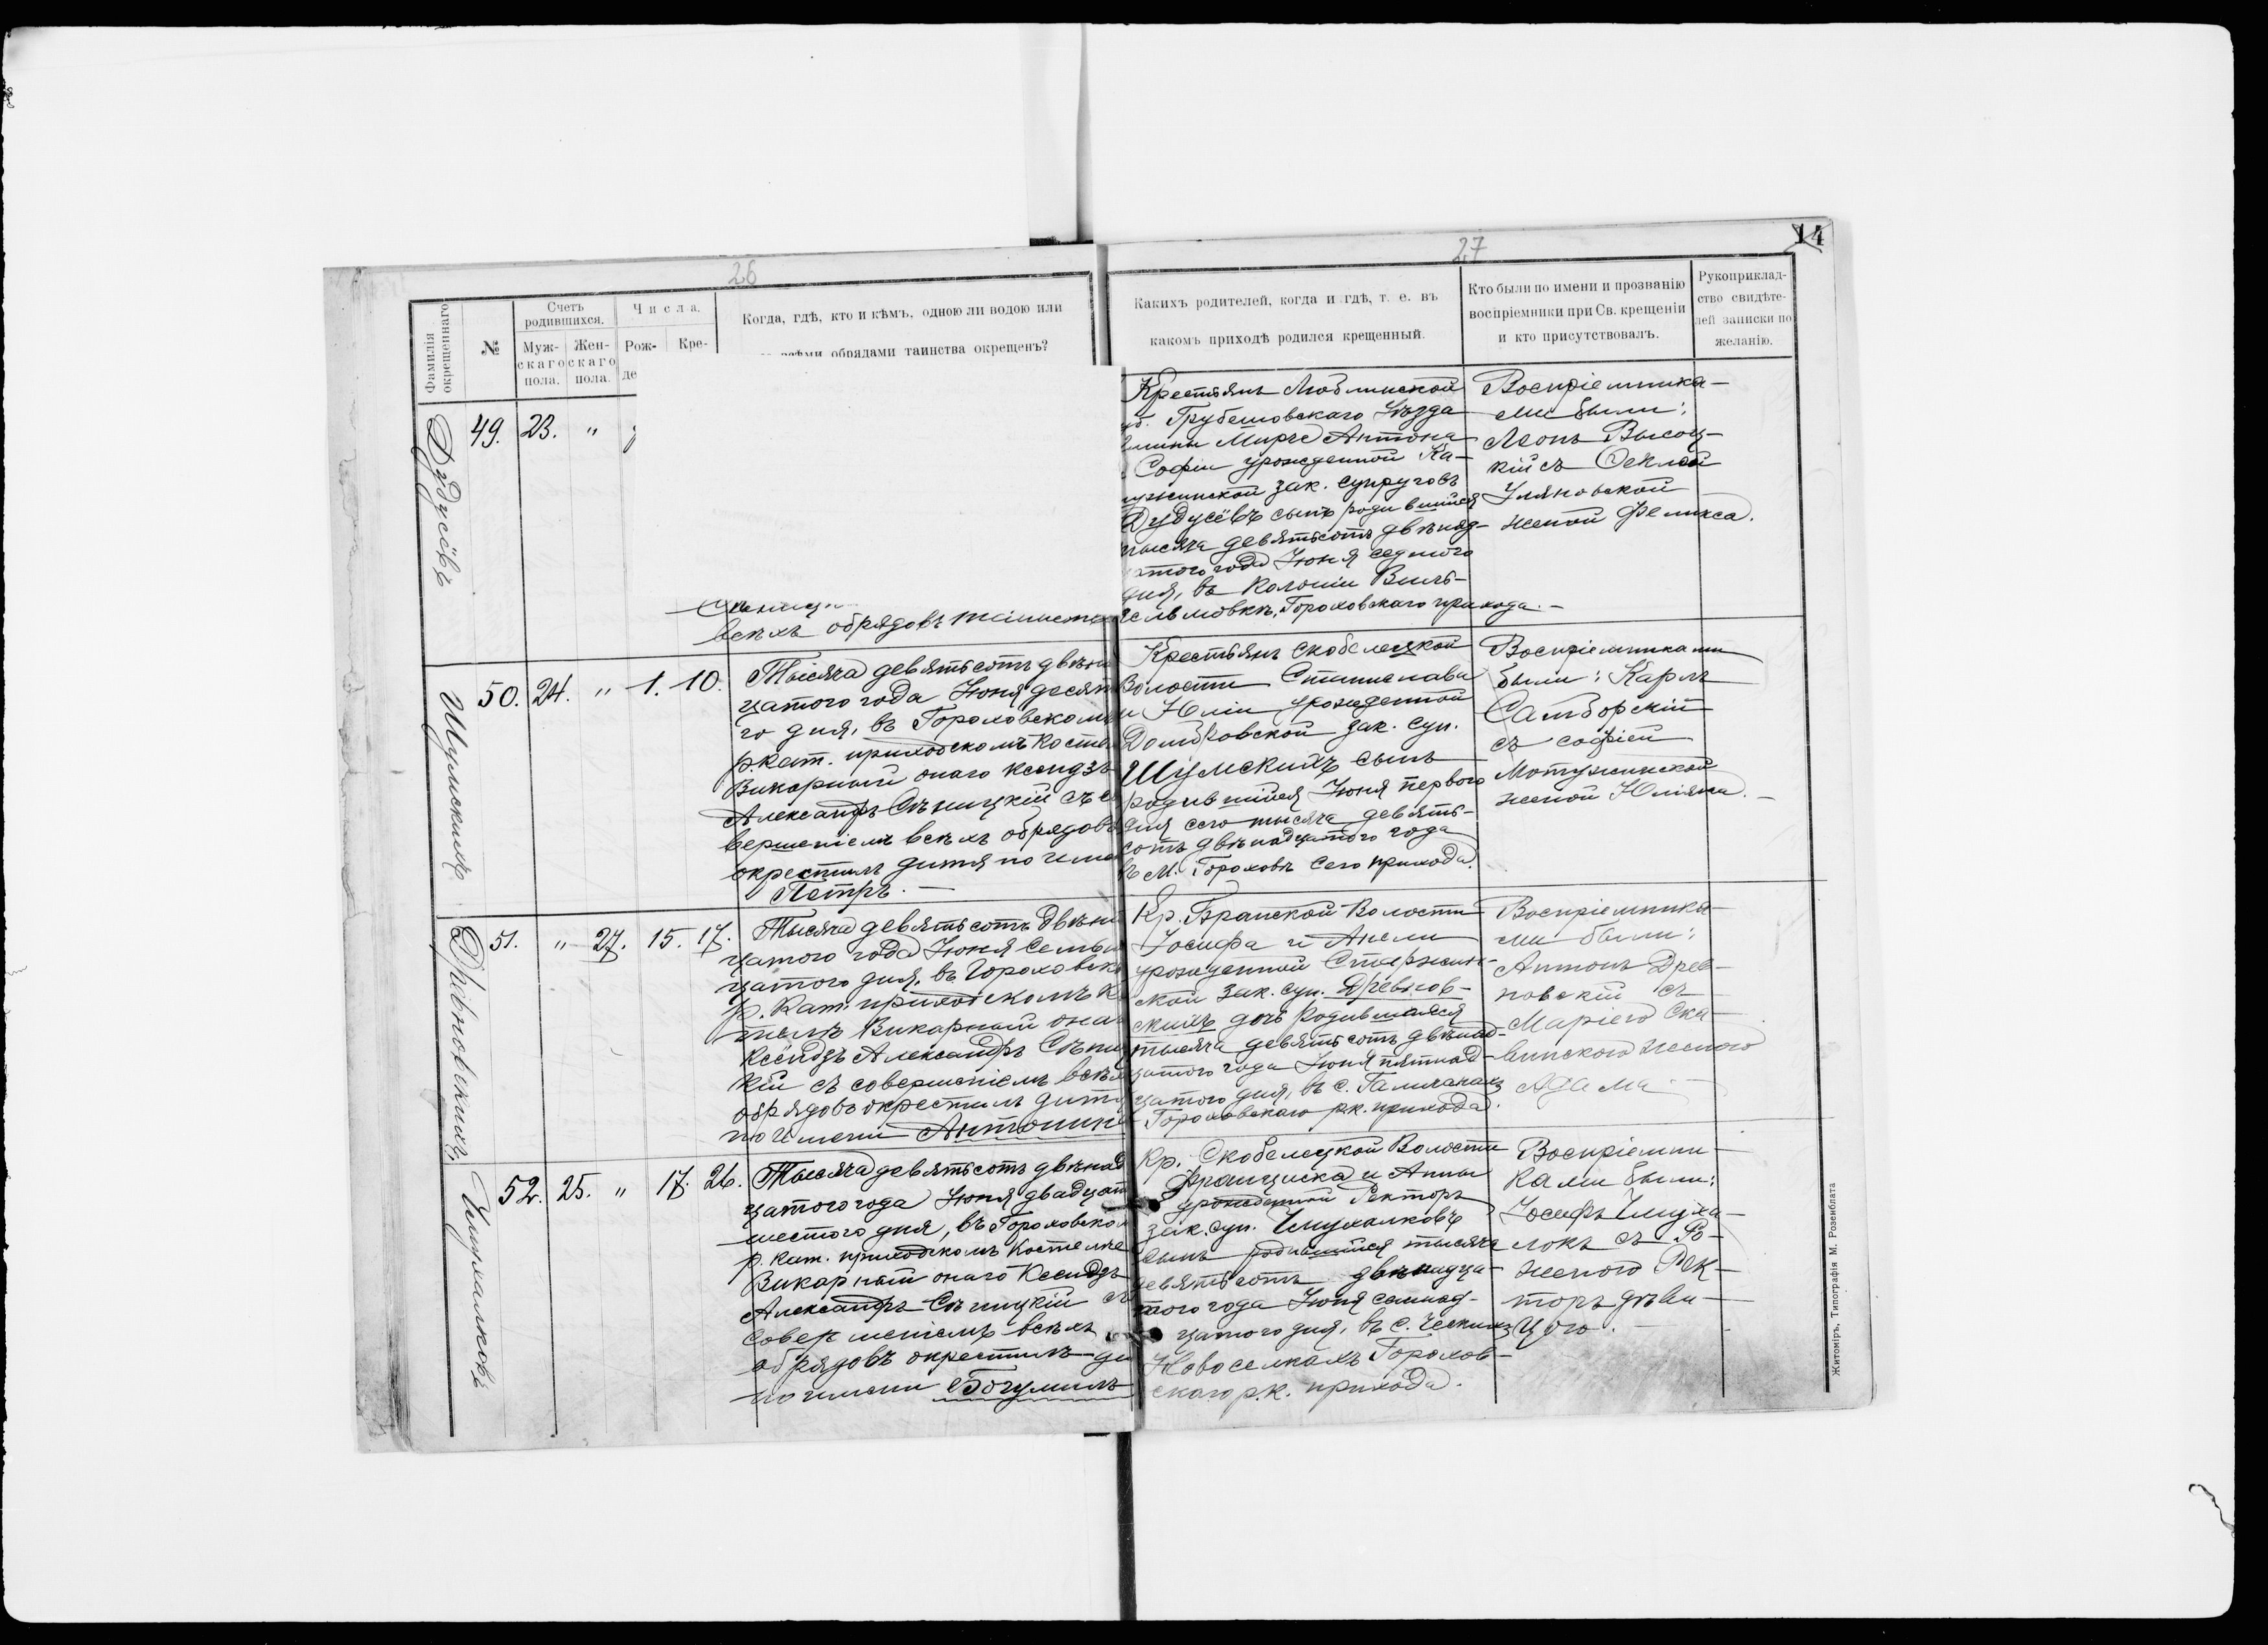 26
27
14
Фамилія окрещеннаго
№
Счетъ родившихся.
Муж-скаго пола.
Жен-скаго пола.
Числа.
Рож-
де
Кре-
Когда, гдѣ, кто и кѣмъ, одною ли водою или
всѣми обрядами таинства окрещенъ?
Какихъ родителей, когда и гдѣ, т. е. въ
какомъ приходѣ родился крещенный.
Кто были по имени и прозванію
воспріемники при Св. крещеніи
и кто присутствовалъ.
Рукоприклад-
ство свидѣте-
лей записки по
желанію.
Дудусёвъ
49. 23. "
всѣхъ обрядовъ таинст
Крестьянъ Люблинской
уб. Грубешовскаго Уѣзда
гмины Мирче Антона
Софіи урожденной Ка-
зак. супруговъ
Дудусёвъ сынъ родившійся
тысяча девятьсотъ двѣнад-
цатого года Іюня седмого
дня, въ Колоніи Виль-
гельмовкѣ, Гороховскаго прихода.-
Воспріемника-
ми были:
Леонъ Высоц-
кій съ Феклой
Уляновской
женой Феликса.
Шумскихъ
50. 24. " 1. 10.
Тысяча девятьсотъ двѣна
цатого года Іюня десят
го дня, въ Гороховскомъ
р. кат. приходскомъ косте
Викарный онаго ксендзъ
Александръ Сѣницкій съ со
вершеніемъ всѣхъ обрядовъ
окрестилъ дитя по име
Петръ.-
Крестьянъ Скобелецкой
Волости Станислава
и Юліи урожденной
Домбковской зак. суп.
Шумскихъ сынъ
родившійся Іюня перваго
дня сего тысяча девять-
сотъ двѣнадцатого года
въ М. Гороховѣ сего прихода.
Воспріемниками
были: Карлъ
Самборскій
съ Софіей
Мотужинской
женой Юліяна.-
Древновскихъ
51. " 27. 15. 17.
Тысяча девятьсотъ двѣна
цатого года Іюня семна
цатого дня, въ Гороховско
р. кат. приходскомъ ко
телѣ Викарный онаг
Ксёндзъ Александръ Сѣниц
кій съ совершеніемъ всѣх
обрядовъ окрестилъ дитя
по имени Антонина
Кр. Бранской Волости
Іосифа и Анели
урожденной
ской зак. суп. Древнов-
скихъ дочь родившаяся
тысяча девятьсотъ двѣнад-
цатого года Іюня пятнад-
цатого дня, въ с. Галичанахъ
Гороховскаго р.к. прихода.
Воспріемника-
ми были:
Антонъ Древ-
новскій съ
Маріею Ска-
винскою женою
Адама.-
Чмухалковъ
52. 25. " 17. 26.
Тысяча девятьсотъ двѣнад
цатого года Іюня двадцат
шестого дня, въ Гороховско
р. кат. приходскомъ костелѣ
Викарный онаго Ксендзъ
Александръ Сѣницкій съ
совершеніемъ всѣхъ
обрядовъ окрестилъ ди
по имени Богумилъ
Кр. Скобелецкой Волости
Францишка и Анны
урожденной Ректоръ
зак. суп. Чмухалковъ
сынъ родившійся тысяча
девятьсотъ двѣнадца-
того года Іюня семнад-
цатого дня, въ с. Ческихъ
Новоселкахъ Горохов-
скаго р.к. прихода.
Воспріемни-
ками были:
Іосифъ Чмуха-
локъ съ Ро-
Рек-
торъ дѣви-
цою.-
Житоміръ, Типографія М. Розенблата